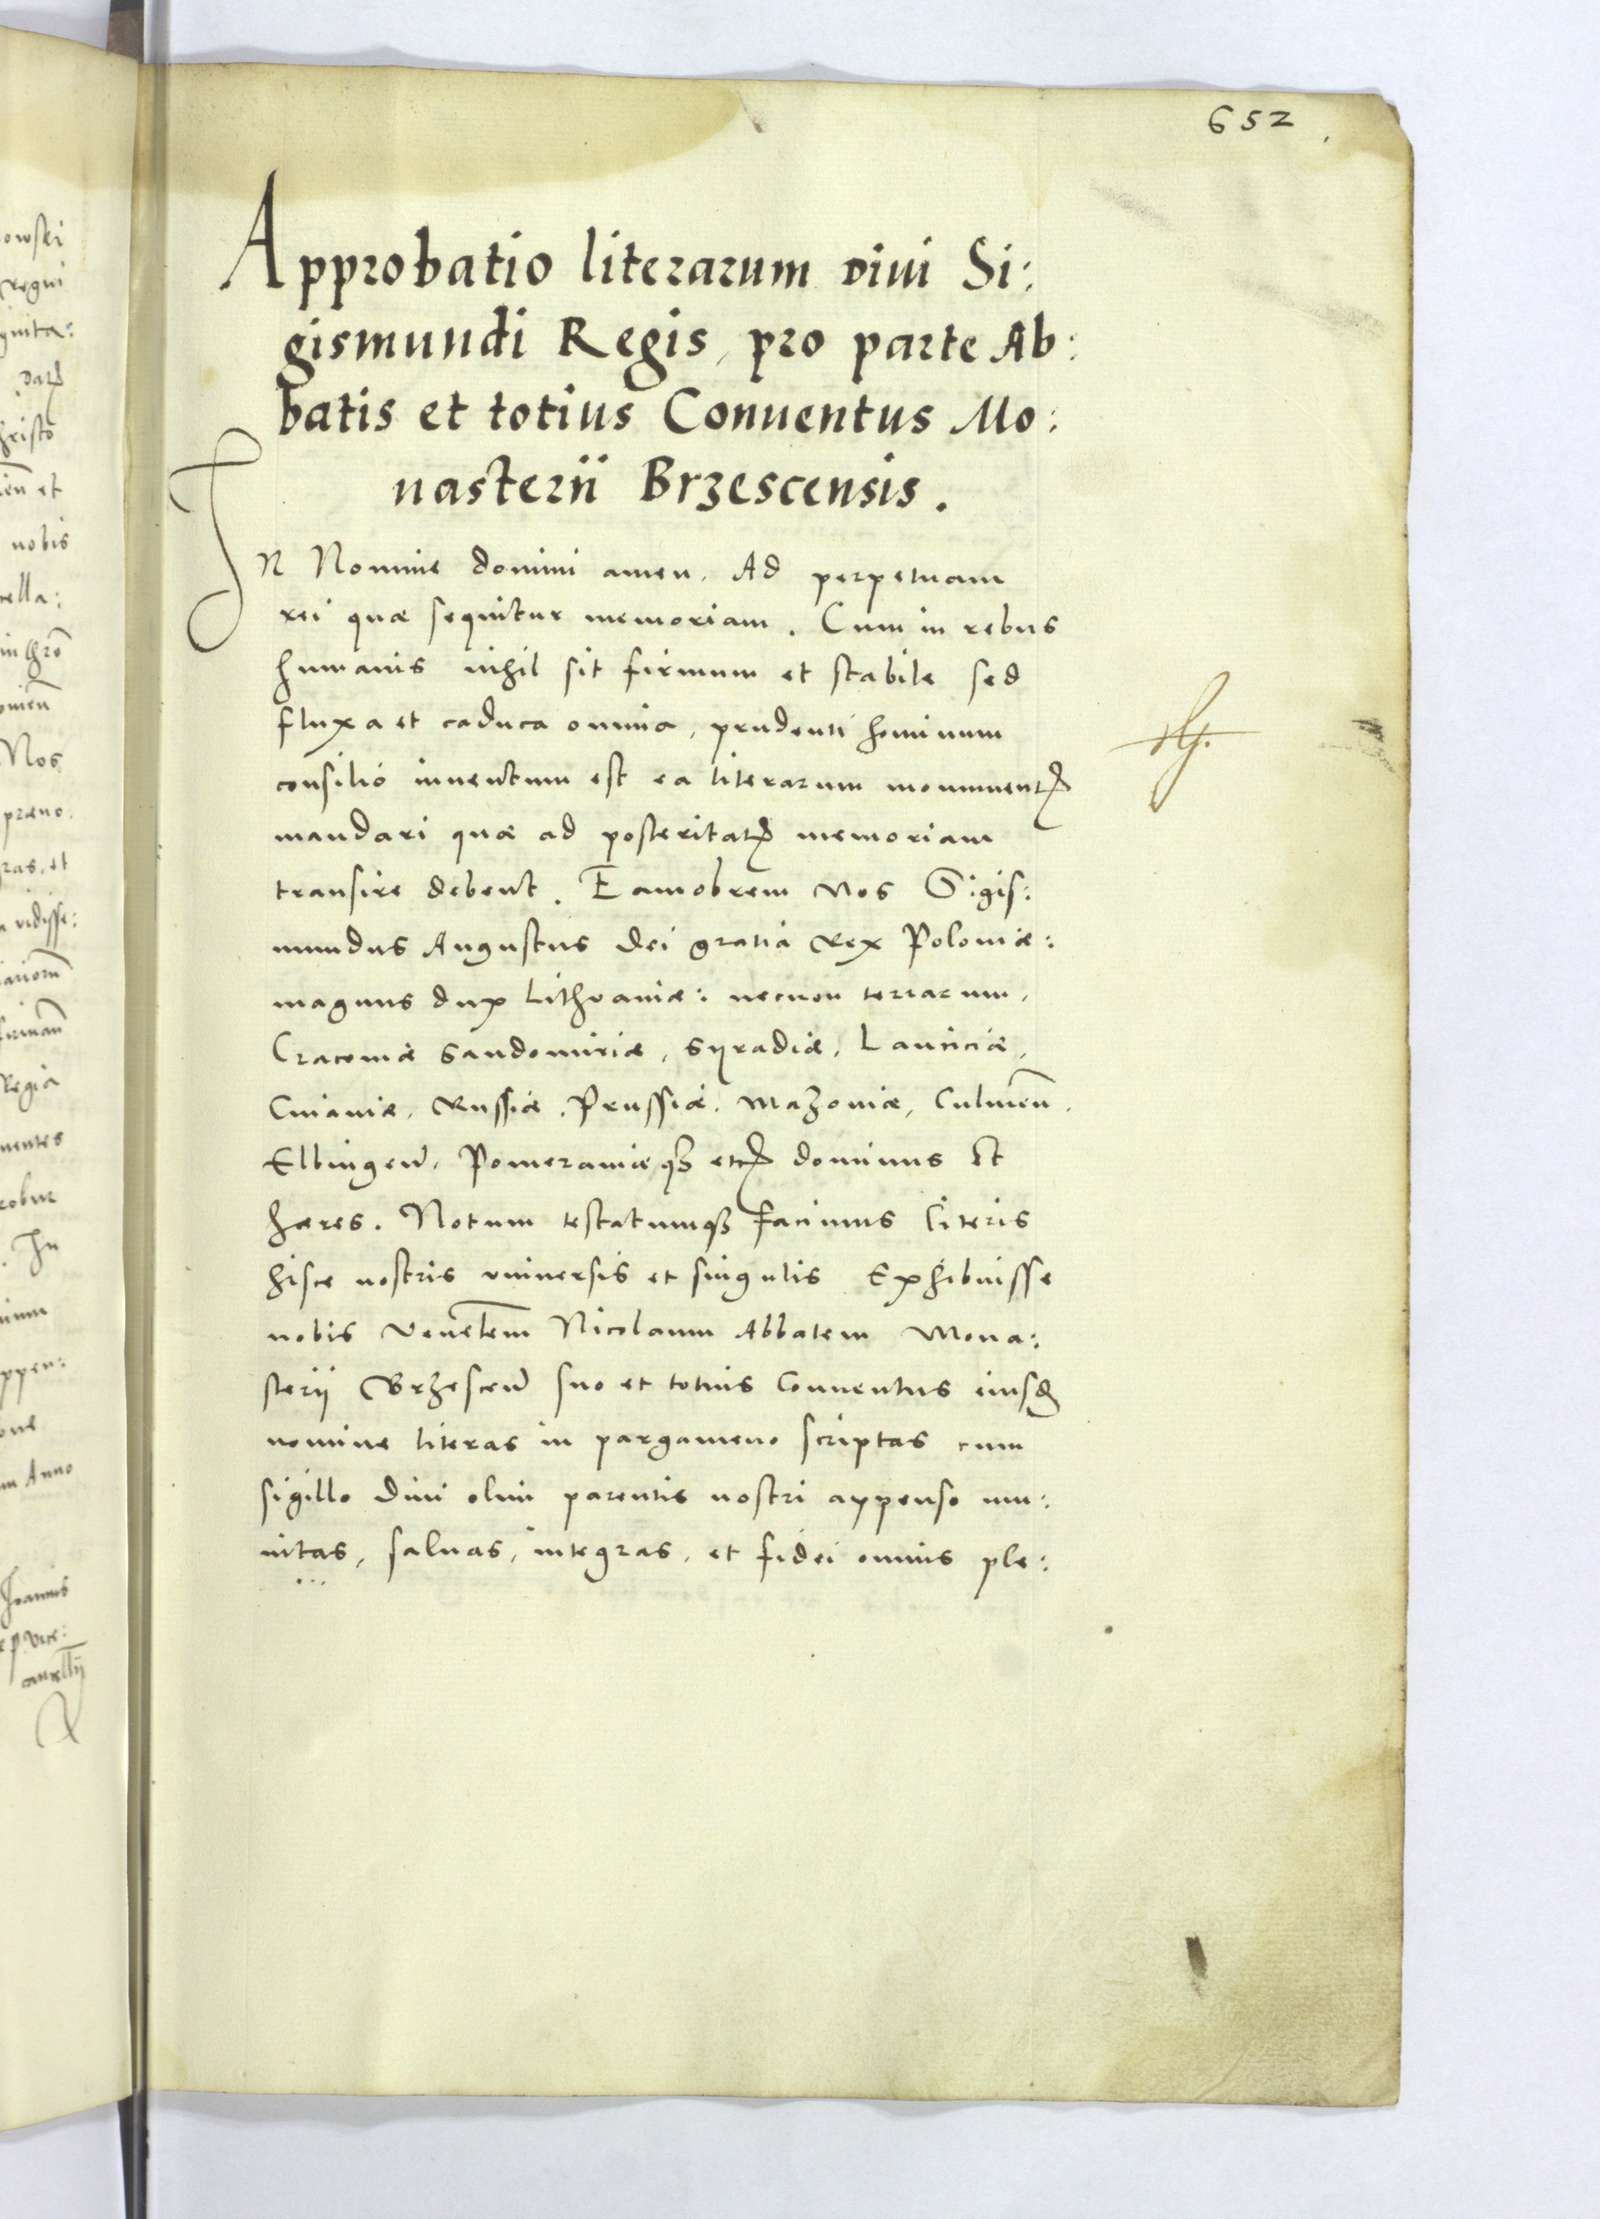 652
Approbatio literarum diui Si:
gismundi Regis, pro parte Ab:
batis et totius Conuentus Mo:
nasterii Brzescensis.
IN Nomine domini amen. Ad perpetuam
rei quæ sequitur memoriam. Cum in rebus
humanis nihil sit firmum et stabile sed
fluxa et caduca omnia, prudenti hominum
consilio inuentum est ea literarum monumentꝭ
mandari quæ ad posteritatꝭ memoriam
transire debent. Eamobrem nos Sigis:
mundus Augustus dei gratia Rex Poloniæ:
magnus dux Lithvaniæ: necnon terrarum,
Cracouiæ Sandomiriæ, Syradiæ, Lanciciæ,
Cuiauiæ, Russiæ, Prussiæ, Mazouiæ, Culmeñ.
Elbingeñ, Pomeraniæqꝫ etcꝭ dominus Et
hæres. Notum testatumqꝫ facimus literis
hisce nostris vniuersis et singulis Exhibuisse
nobis Veneᷓlem Nicolaum Abbatem Mona:
sterij Brzesceñ suo et totius Conuentus eiusdꝭ
nomine literas in pargameno scriptas cum
sigillo diui olim parentis nostri appenso mu:
nitas, saluas, integras, et fidei omnis ple: